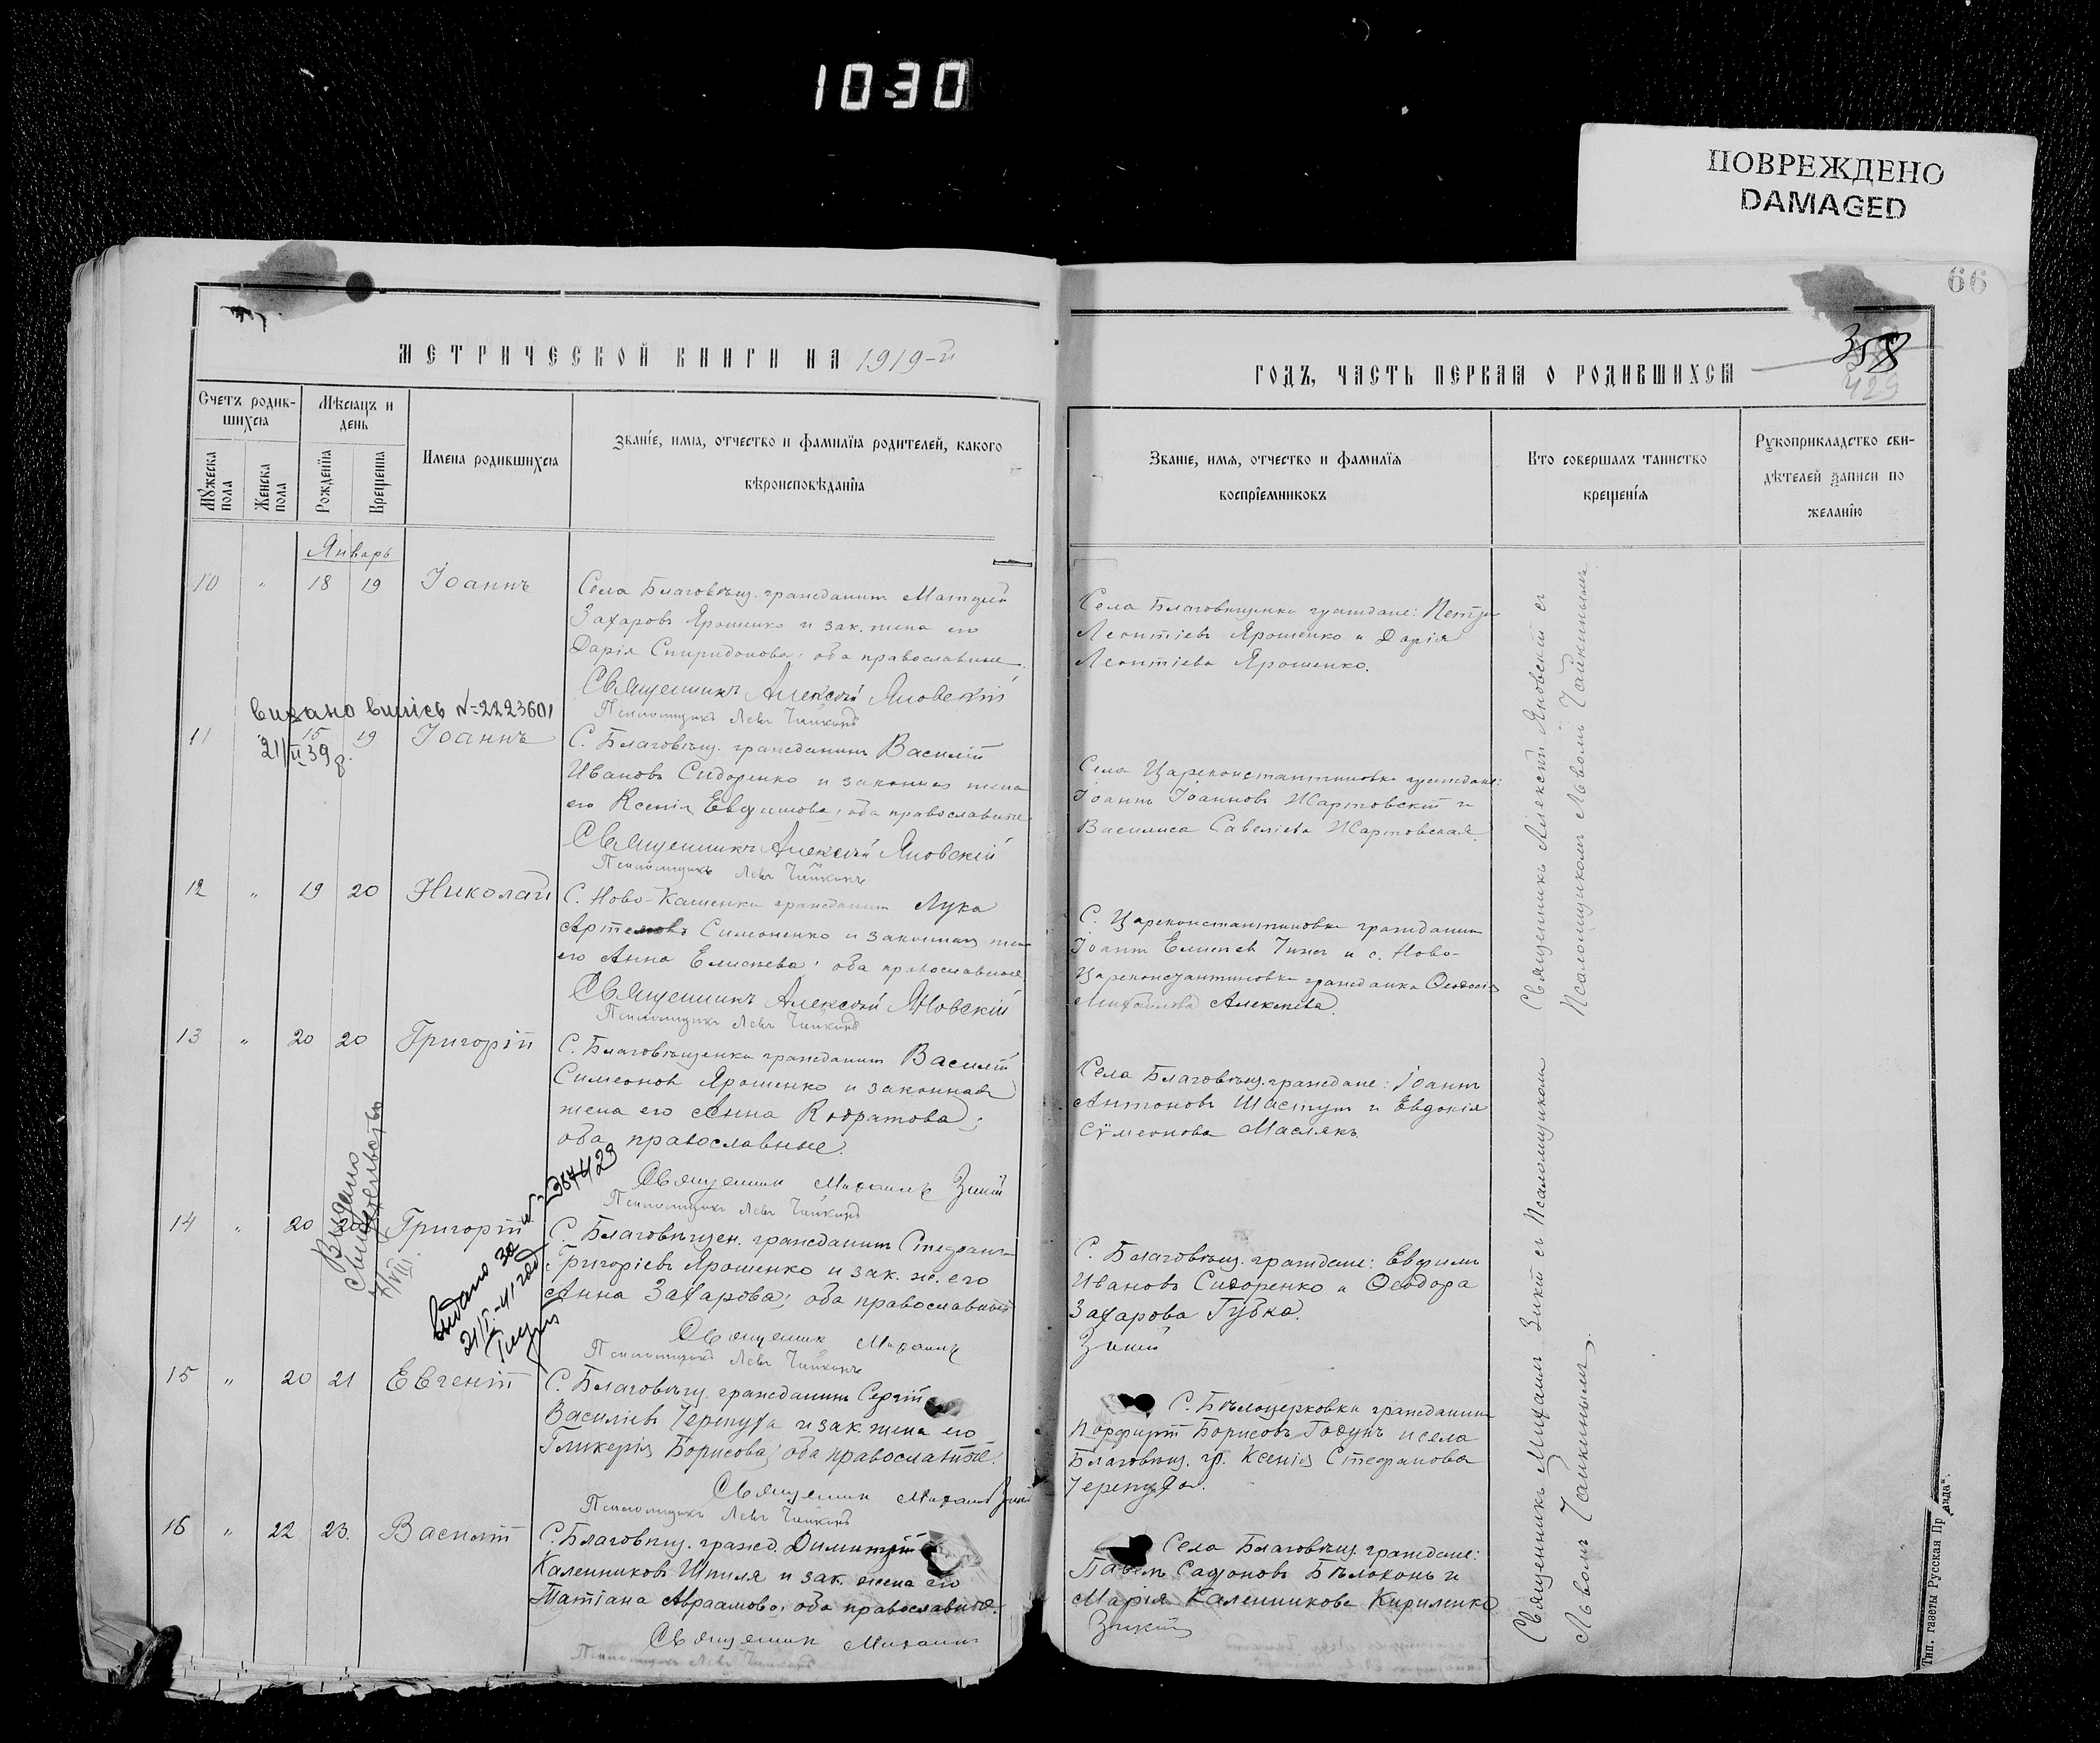 1030
ПОВРЕЖДЕНО
DAMAGED
66
358
429
МЕТРИЧЕСКОЙ КНИГИ НА 1919-й
ГОДЪ, ЧАСТЬ ПЕРВАЯ О РОДИВШИХСЯ
Счетъ родив-
шихся
Мужеска пола
Женска пола
Мѣсяцъ и
день
Рожденїя
Крещенїя
Имена родившихся
Званіе, имя, отчество и фамилїя родителей, какого
вѣроисповѣданїя
Званіе, имя, отчество и фамилїя
воспрїемниковъ
Кто совершалъ таинство
крещенїя
Рукоприкладство сви-
дѣтелей записи по
желанїю
Январь
10 " 18 19 Іоаннъ
Села Благовѣщ. гражданинъ Матѳей
Захаровъ Ярошенко и зак. жена его
Дарія Спиридонова, оба православные
Священникъ Алексѣй Яновскій
Псаломщикъ Левъ Чайкинъ
Села Благовѣщенки граждане: Петръ
Леонтіевъ Ярошенко и Дарія
Леонтіева Ярошенко.
видано випісь №2223601
21/II 39 р.
11 15 19 Іоаннъ
С. Благовѣщ. гражданинъ Василій
Ивановъ Сидоренко и законная жена
его Ксенія Евфимова, оба православные
Священникъ Алексѣй Яновскій
Псаломщикъ Левъ Чайкинъ
Села Цареконстантиновки граждане:
Іоаннъ Іоанновъ Жартовскій и
Василиса Савеліева Жартовская.
12 " 19 20 Николай
С. Ново-Каменки гражданинъ Лука
Артемовъ Симоненко и законная жена
его Анна Елисѣева, оба православные
Священникъ Алексѣй Яновскій
Псаломщикъ Левъ Чайкинъ
С. Цареконстантиновки гражданинъ
Іоаннъ Елисѣев и с. Ново-
Цареконстантиновки гражданка Ѳеодосія
Михайлова Алексѣева.
13 " 20 20 Григорій
С. Благовѣщенки гражданинъ Василій
Симеонов Ярошенко и законная
жена его Анна Кодратова;
оба православные.
Священник Михаилъ Зикій
Псаломщикъ Левъ Чайкинъ
Села Благовѣщ. граждане: Іоаннъ
Антоновъ Шастун и Евдокія
Сѵмеонова Маслякъ
Выдано
свидѣтельство
7/VIII.
14 " 20 20 Григорій
выдано за № 367423
21/I-41 год
С. Благовѣщен. гражданинъ Стефанъ
Григоріевъ Ярошенко и зак. ж. его
Анна Захарова; оба православные
Священник Михаилъ
Псаломщикъ Левъ Чайкинъ
С. Благовѣщ. граждане: Евфимъ
Ивановъ Сидоренко и Ѳеодора
Захарова Губка.
Зикій
15 " 20 21 Евгеній
С. Благовѣщ. гражданинъ Сергій
Василіевъ Черепуха и зак. жена его
Гликерія Борисова; оба православные.
Священник Михаилъ Зикій
Псаломщикъ Левъ Чайкинъ
С. Бѣлоцерковки гражданинъ
Порфирій Борисовъ Годунъ и села
Благовѣщ. гр. Ксенія Стефанова
Черепуха.
16 " 22 23. Василій
С. Благовѣщ. гражд. Димитрій
Каленниковъ Шпиля и зак. жена его
Татіана Авраамова, оба православные.
Священник Михаилъ
Псаломщикъ Левъ Чайкинъ
Села Благовѣщ. граждане:
Павелъ Сафоновъ Бѣлоконь и
Марія Каленникова Кириленко
Зикій
Священникъ Алексѣй Яновскій съ
Псаломщикомъ Львомъ Чайкинымъ
Священникъ Михаилъ Зикій съ Псаломщикомъ
Львомъ Чайкинымъ.
Тип. газеты Русская Пр
авда".